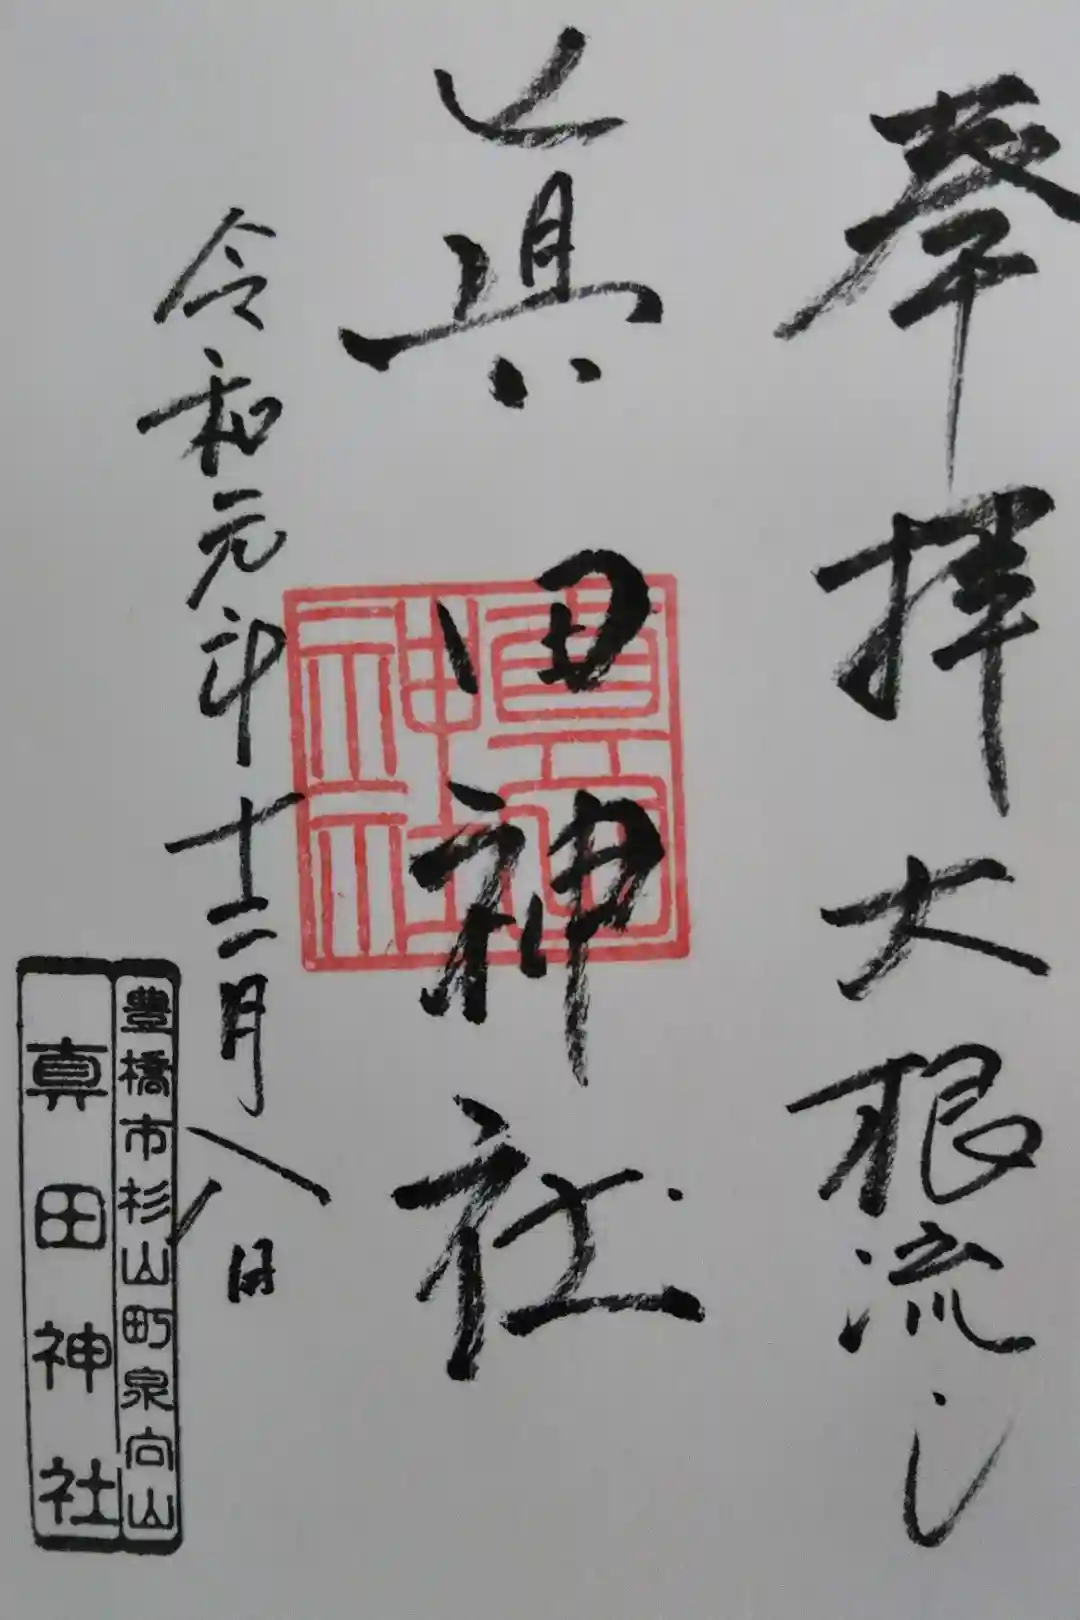 奉拝大根流し
眞田神社
令和元年十二月八日
豊橋市杉山町泉向山
真田神社